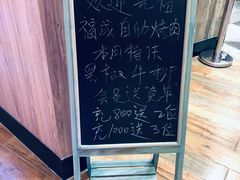 欢迎光临
福成自助烤肉
本月特供
黑椒牛排
会员送赠单
充800送2位
充1000送3位